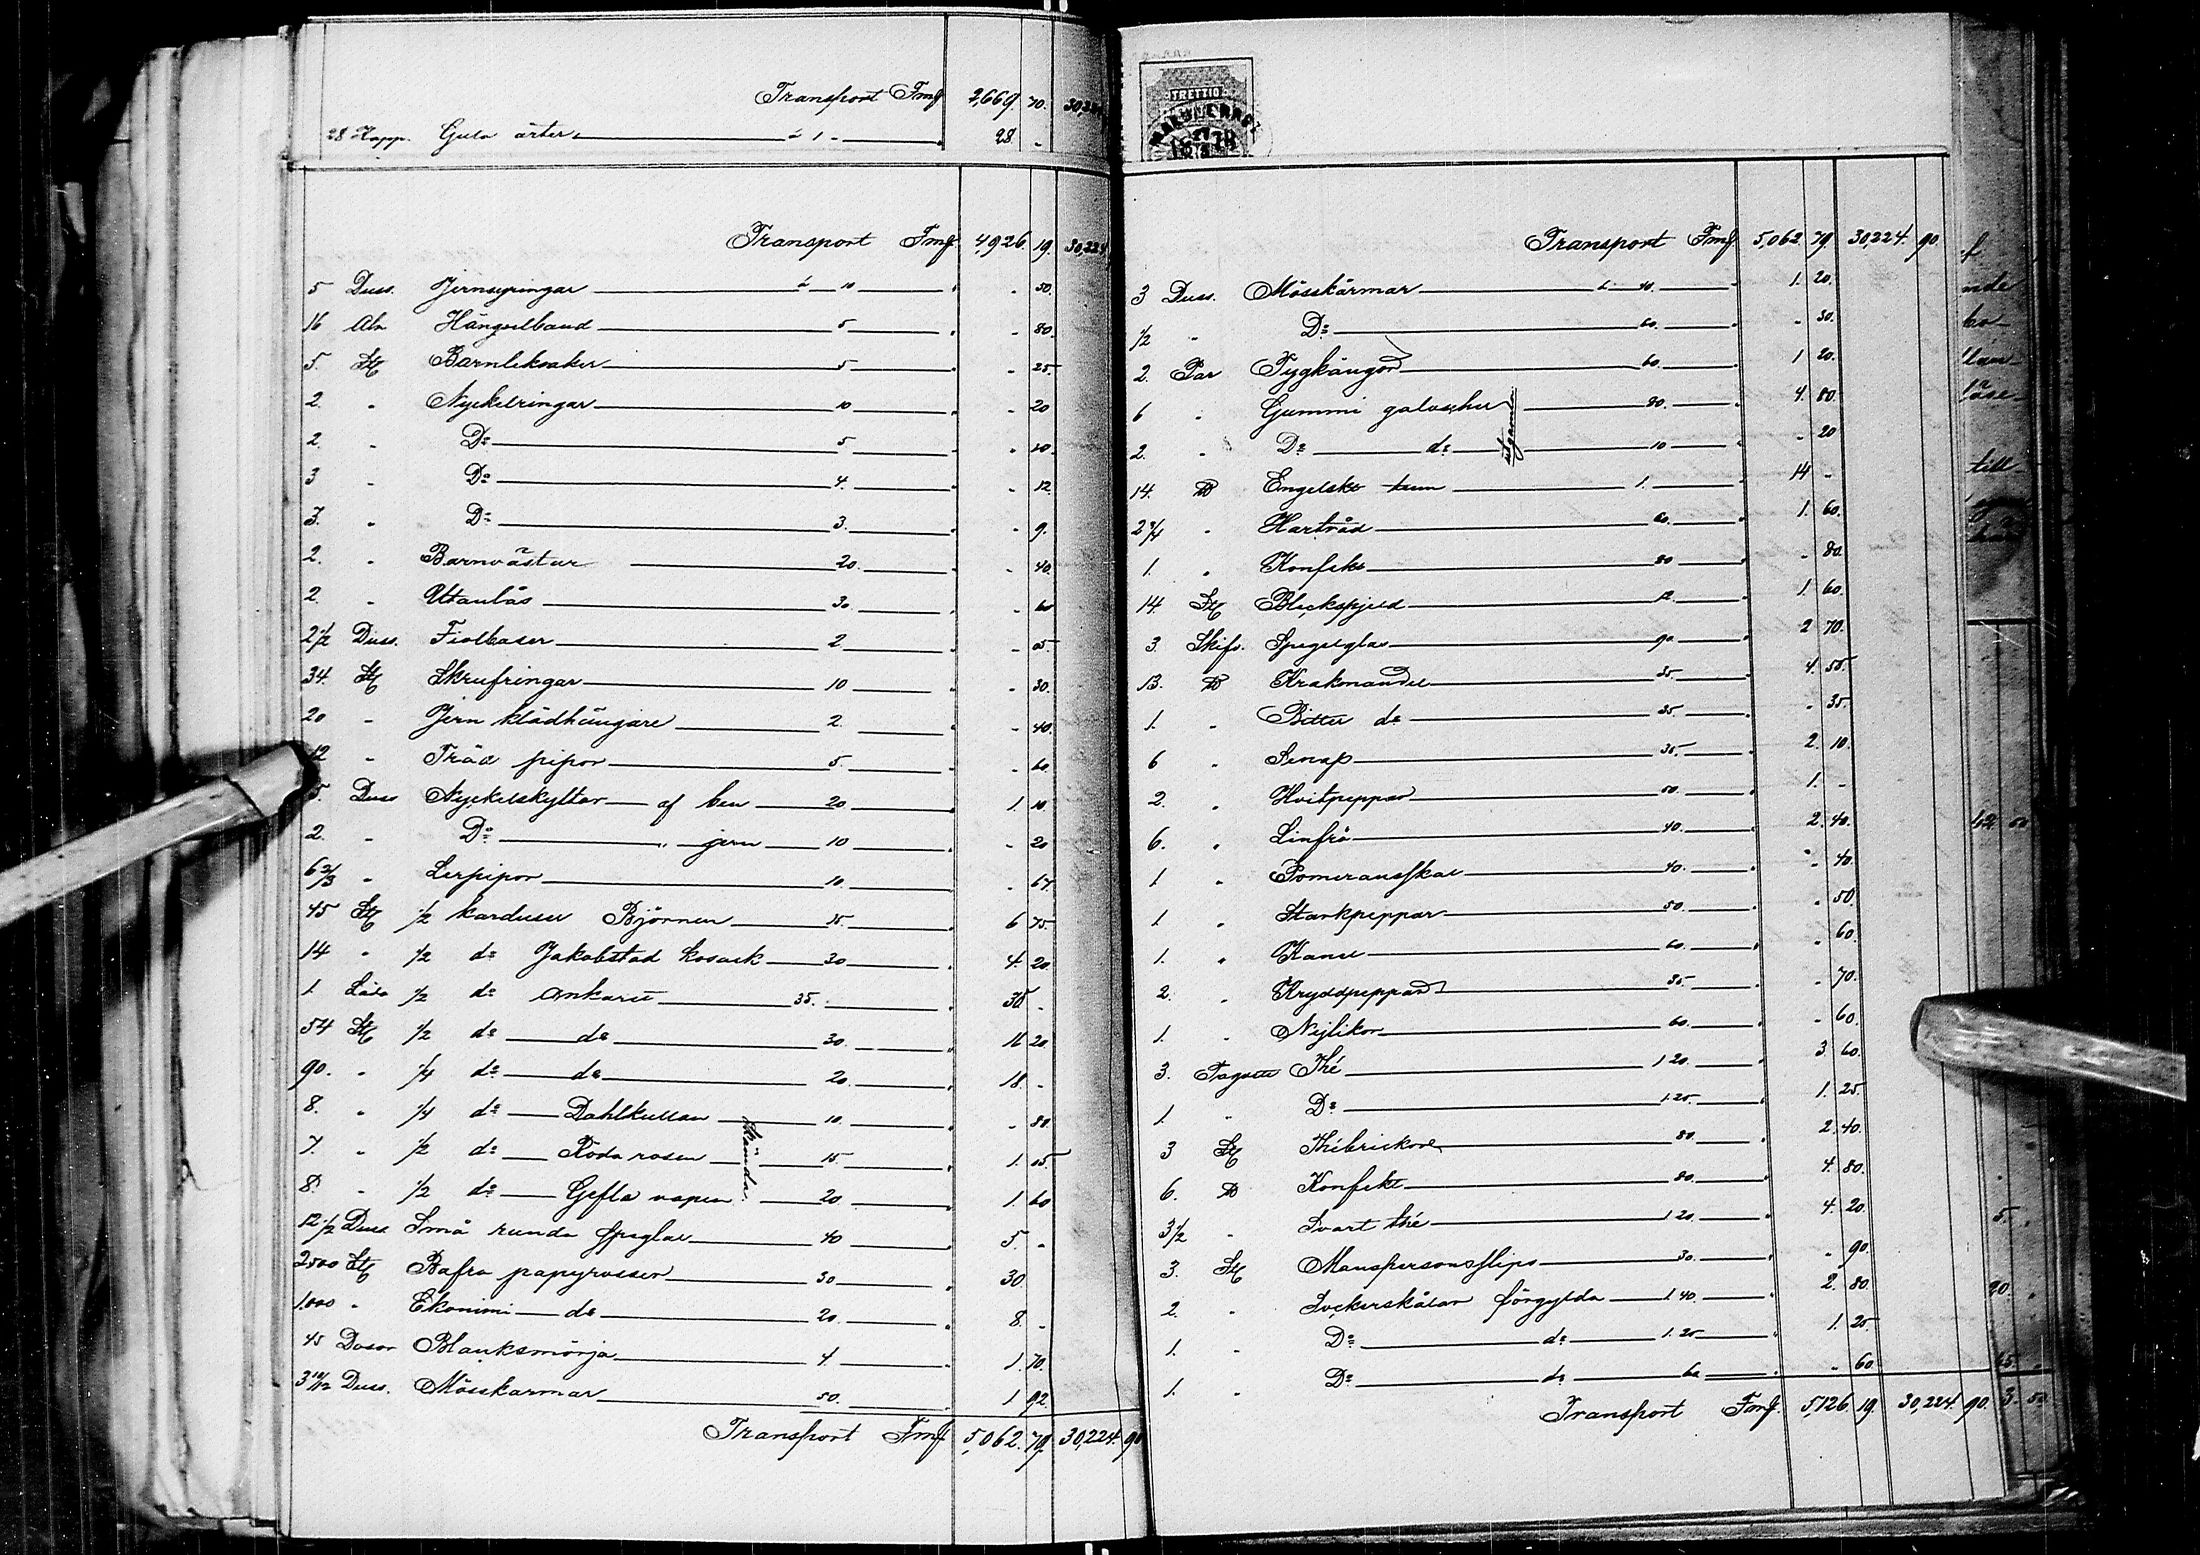 Transport Fmk 2,669. 70. 30,224
28 Kapp. Gula ärter á 1 - " 28 -
Transport Fmk 4,926. 19. 30,224
5 Duss. Jernsyringar á 10 " - 50.
16 Aln Hängselband 5 " - 80.
5. St Barnleksaker 5 " - 25.
2. " Nyckelringar 10 " - 20
2 " Do 5 " - 10.
3 " Do 4. " - 12.
3. " Do 3. " - 9.
2. " Barnvästar 20. " - 40.
2. " Utanlås 30. " - 60
2 1/2 Duss. Fiolbaser 2 " - 05.
34. St Skrufringar 10 " - 30.
20 " Jern klädhängare 2. " - 40.
12 " Träd pipor 5. " - 60.
5. Duss Nyckelskyltar af ben 20 " 1. 10
2. " Do " jern 10 " - 20
6 2/3 " Lerpipor 10 " - 67.
45 St 1/2 karduser Björnen 15. " 6 75.
14 " 1/2 do Jakobstad kosack 30 " 4. 20.
1. Låda 1/2 do Ankaru 35. " 35 -
54 St 1/2 do do 30. " 16 20
90. " 1/4 do do 20. " 18. -
8. " 1/4 do Dahlkullan 10. " - 80
7. " 1/2 do Röda rosen 15. " 1. 05.
8. " 1/2 do Gefla vapen 20 " 1. 60
12 1/2 Duss. Små runda speglar 40 " 5. -
2500 St Bafra papyrosser 30 " 30
1,000 " Ekonimi do 20. " 8. -
45 Dosor Blanksmörja 4 " 1. 70.
3 10/12 Duss. Mösskarmar 50. " 1 92.
Transport Fmk 5,062. 79. 30,224. 90
TRETTIO
Transport Fmk 5,062. 79. 30,224. 90
3 Duss. Mösskärmar á 40. " 1. 20.
1/2 " Do 60. " - 30.
2. Par Tygkängor 60. " 1 20.
6 " Gummi galoscher 80. " 4. 80.
2. " Do do 10 " - 20
14. ℔ Engelskt 1. " 14 -
2 3/4 " Hartråd 60. " 1. 60.
1. " Konfekt 80 " - 80.
14. St Bleckspjeld 12. " 1. 60.
3. Skifv. Spegelglas 90 " 2 70.
13. ℔ Krakmandel 35 " 4. 55.
1. " Bitter do 35. " - 35.
6 " Senap 35. " 2. 10.
2. " Hvitpeppar 50. " 1. -
6. " Linfrö 40. " 2. 40.
1 " Pomeransskal 40. " - 40.
1 " Starkpeppar 50. " - 50.
1. " Kanel 60. " - 60.
2. " Kryddpeppar 35. " - 70.
1. " Nejlikor 60. " - 60.
3. Paquette Thé 1 20. " 3 60.
1 " Do 1 25. " 1. 25.
3 St Thébrickor 80. " 2. 40.
6. ℔ Konfekt 80. " 4. 80.
3 1/2 " Svart thé 1 20. " 4. 20.
3. St Manspersonsslips 30. " - 90.
2. " Sockerskålar förgylda 1 40. " 2. 80.
1. " Do do 1. 25 " 1. 25.
1. " Do do 60 " - 60.
Transport Fmk. 5,126. 19. 30,224. 90.